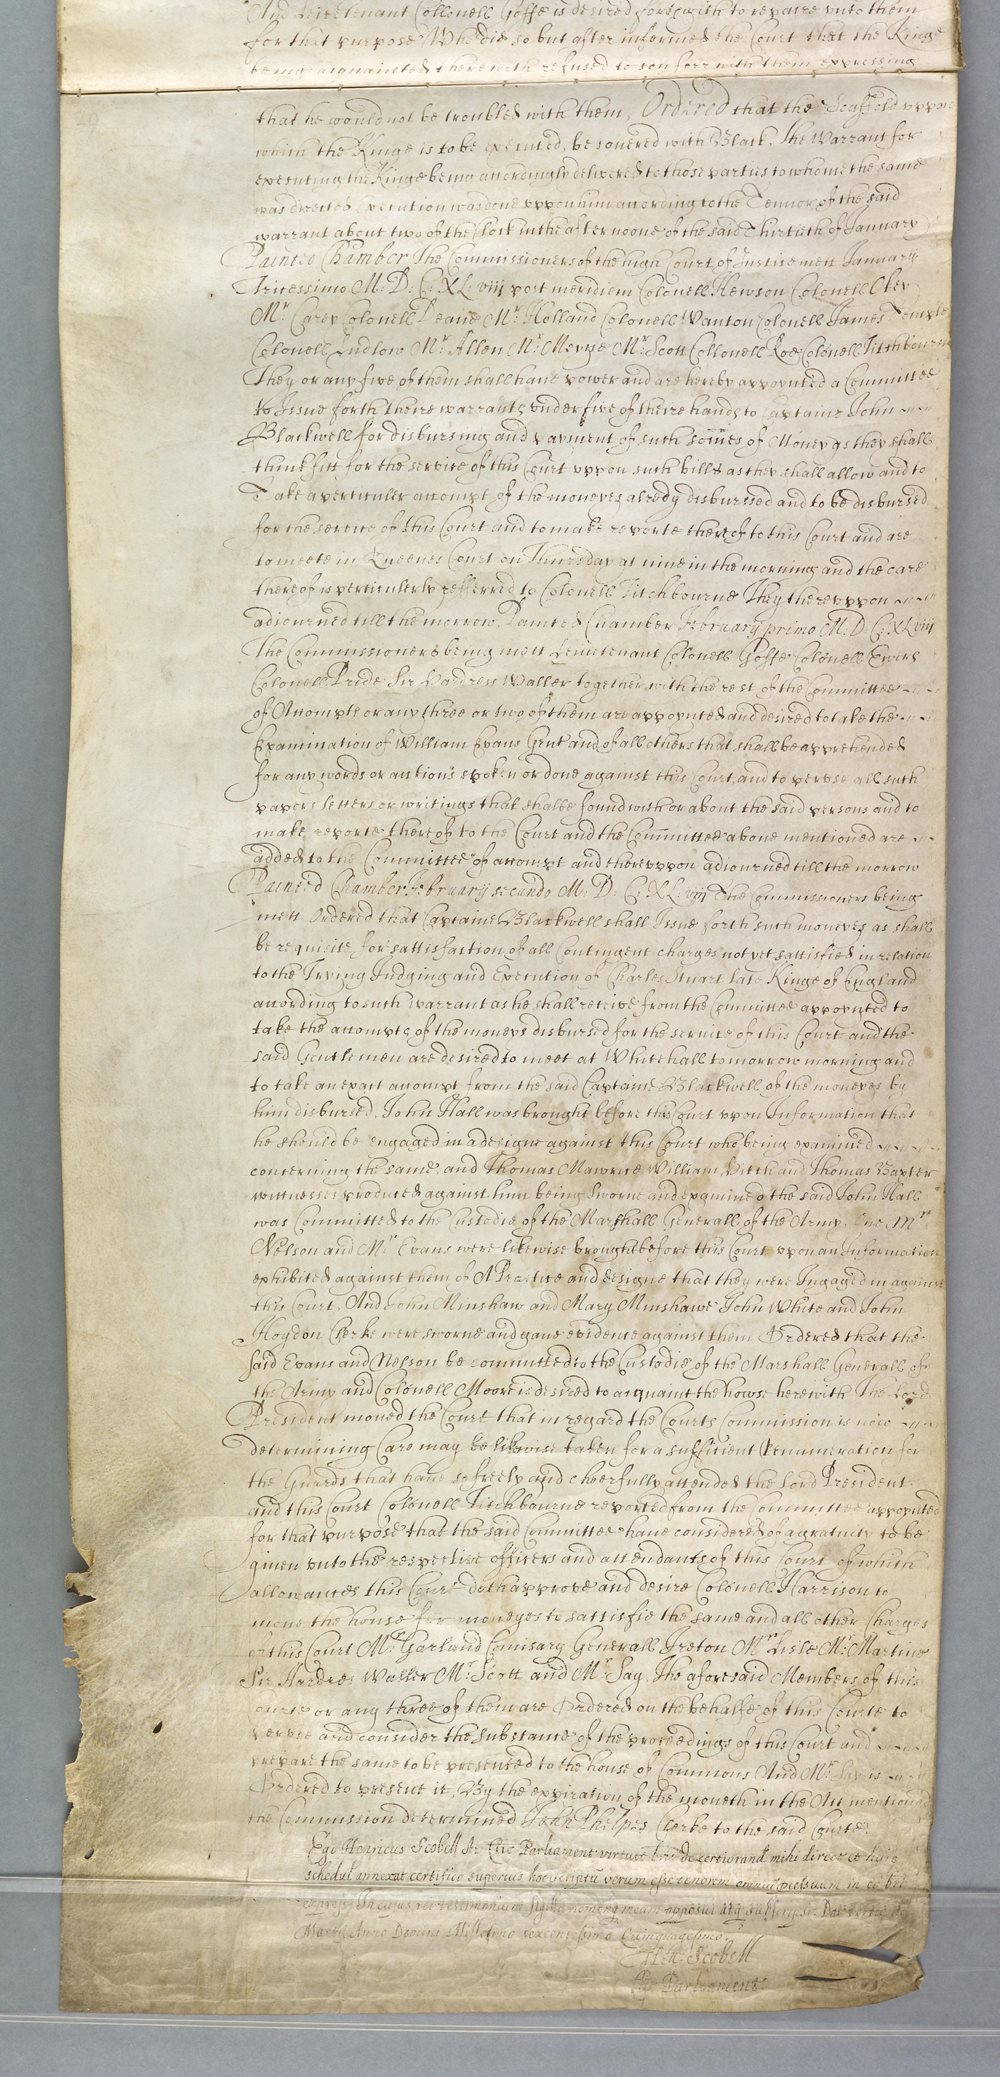 And Lieutenant Collonell Goffe is desired forthwith to repaire unto them
for that purpose Who did so but after informed the Court that the Kinge
being acquainted therewith refused to conferr with them expressing
that he would not be troubled with them, Ordered that the Scaffold uppon
which the Kinge is to be executed, be covered with Black. The Warrant for
executing the Kinge being accordingly delivered to those parties to whome the same
was directed Execution was done uppon him according to the Tennor of the said
warrant about two of the Clock in the afternoone of the said Thirtieth of January
Painted Chamber The Commissioners of the high Court of Justice mett January
Tricessimo M. D. C. XL. viij post meridiem Colonell Hewson Colonell Okey
Mr. Carey Colonell Deane Mr. Holland Colonell Wanton Colonell James Temple
Colonell Ludlow Mr. Allen Mr. Meyne Mr. Scott Collonell Roe Colonell Titchbourne
They or any five of them shall have power and are hereby appoynted a Committee
to Issue forth theire warrants under five of theire hands to Captaine John
Blackwell for disbursing and payment of such sommes of Money as they shall
think fitt for the service of this Court uppon such bills as they shall allow and to
Take a perticuler accompt of the moneyes alredy disburssed and to be disbursed
for the service of this Court and to make reporte thereof to this Court and are
to meete in Queenes Court on Thursday at nine in the morning and the care
thereof is perticulerly refferred to Colonell Titchbourne They thereuppon
adiourned till the morrow. Painted Chamber February primo M. D. C. XL viij
The Commissioners being mett Leiutenant Colonell Goffe Colonell Ewers
Colonell Pride Sir Hardress Waller together with the rest of the Committee
of Accompts or any three or two of them are appoynted and desired to take the
Examination of William Evans Gent and of all others that shall be apprehended
for any words or actions spoken or done against this Court, and to peruse all such
papers letters or writings that shalbe found with or about the said persons and to
make reporte thereof to the Court and the Committee above mentioned are
added to the Committee of accompt and thereuppon adiourned till the morrow
Painted Chamber February secundo M. D. C. XL. viij The Commissioners being
mett Ordered that Captaine Blackwell shall Issue forth such moneyes as shall
be requisite for sattisfaction of all Contingent charges not yet sattisfied in relation
to the Trying Judging and Execution of Charles Stuart late Kinge of England
according to such warrant as he shall receive from the Committee appoynted to
take the accompts of the moneys disbursed for the service of this Court and the
said Gentlemen are desired to meet at Whitehall tomorrow morning and
to take an exact accompt from the said Captaine Blackwell of the moneyes by
him disbursed. John Hall was brought before this Court upon Information that
he should be engaged in a designe against this Court who being examined
concerning the same and Thomas Mawrice William and Thomas Baxter
wittnesses produced against him being Sworne and examined the said John Hall
was Committed to the Custodie of the Marshall Generall of the Army. One Mr.
Nelson and Mr. Evans were likewise brought before this Court upon an Information
exhibited against them of A Practice and designe that they were Ingaged in against
this Court. And John Minshaw and Mary Minshawe John White and John
Hoydon Clerke were sworne and gave evidence against them Ordered that the
said Evans and Nelson be committed to the Custodie of the Marshall Generall of
the Army and Colonell Moore is desired to acquaint the howse herewith The Lord
President moved the Court that in regard the Courts Commission is now
determining Care may be likewise taken for a sufficient Renumeration for
the Guards that have so freely and cheerfully attended the Lord President
and this Court Colonell Titchbourne reported from the Committee appoynted
for that purpose that the said Committee have considered of a gratuity to be
given unto the respective officers and attendants of this Court of which
allowances this Court doth approve and desire Colonell Harrison to
move the house for moneyes to sattisfie the same and all other Charges
of this Court Mr. Garland Comissary Generall Ireton Mr. Lisle Mr. Martine
Sir Hardres Waller Mr. Scott and Mr. Say The aforesaid Members of this
Court or any three of them are Ordered on the behalfe of this Courte to
peruse and consider the substance of the proceedings of this Court and
prepare the same to be presented to the house of Commons And Mr. Say is
Ordered to present it, By the expiration of the moneth in the Act mentioned
the Commission determined John Phelpes Clerke to the said Courte.
Ego Henricus Scobell Ar Cleric Parliament virtute bris de certiorand mihi direct et huic
schedul annexat certifico superius hoc scriptu verum esse tenorem omniu pressuum in eo bri
express In cujus rei testimonium sigillu nomenq meum apposui atq subscripsi Dat
Martij Anno Domini Millesimo sexcentesimo Quinquagesimo
Hen: Scobell
Cler Parliament